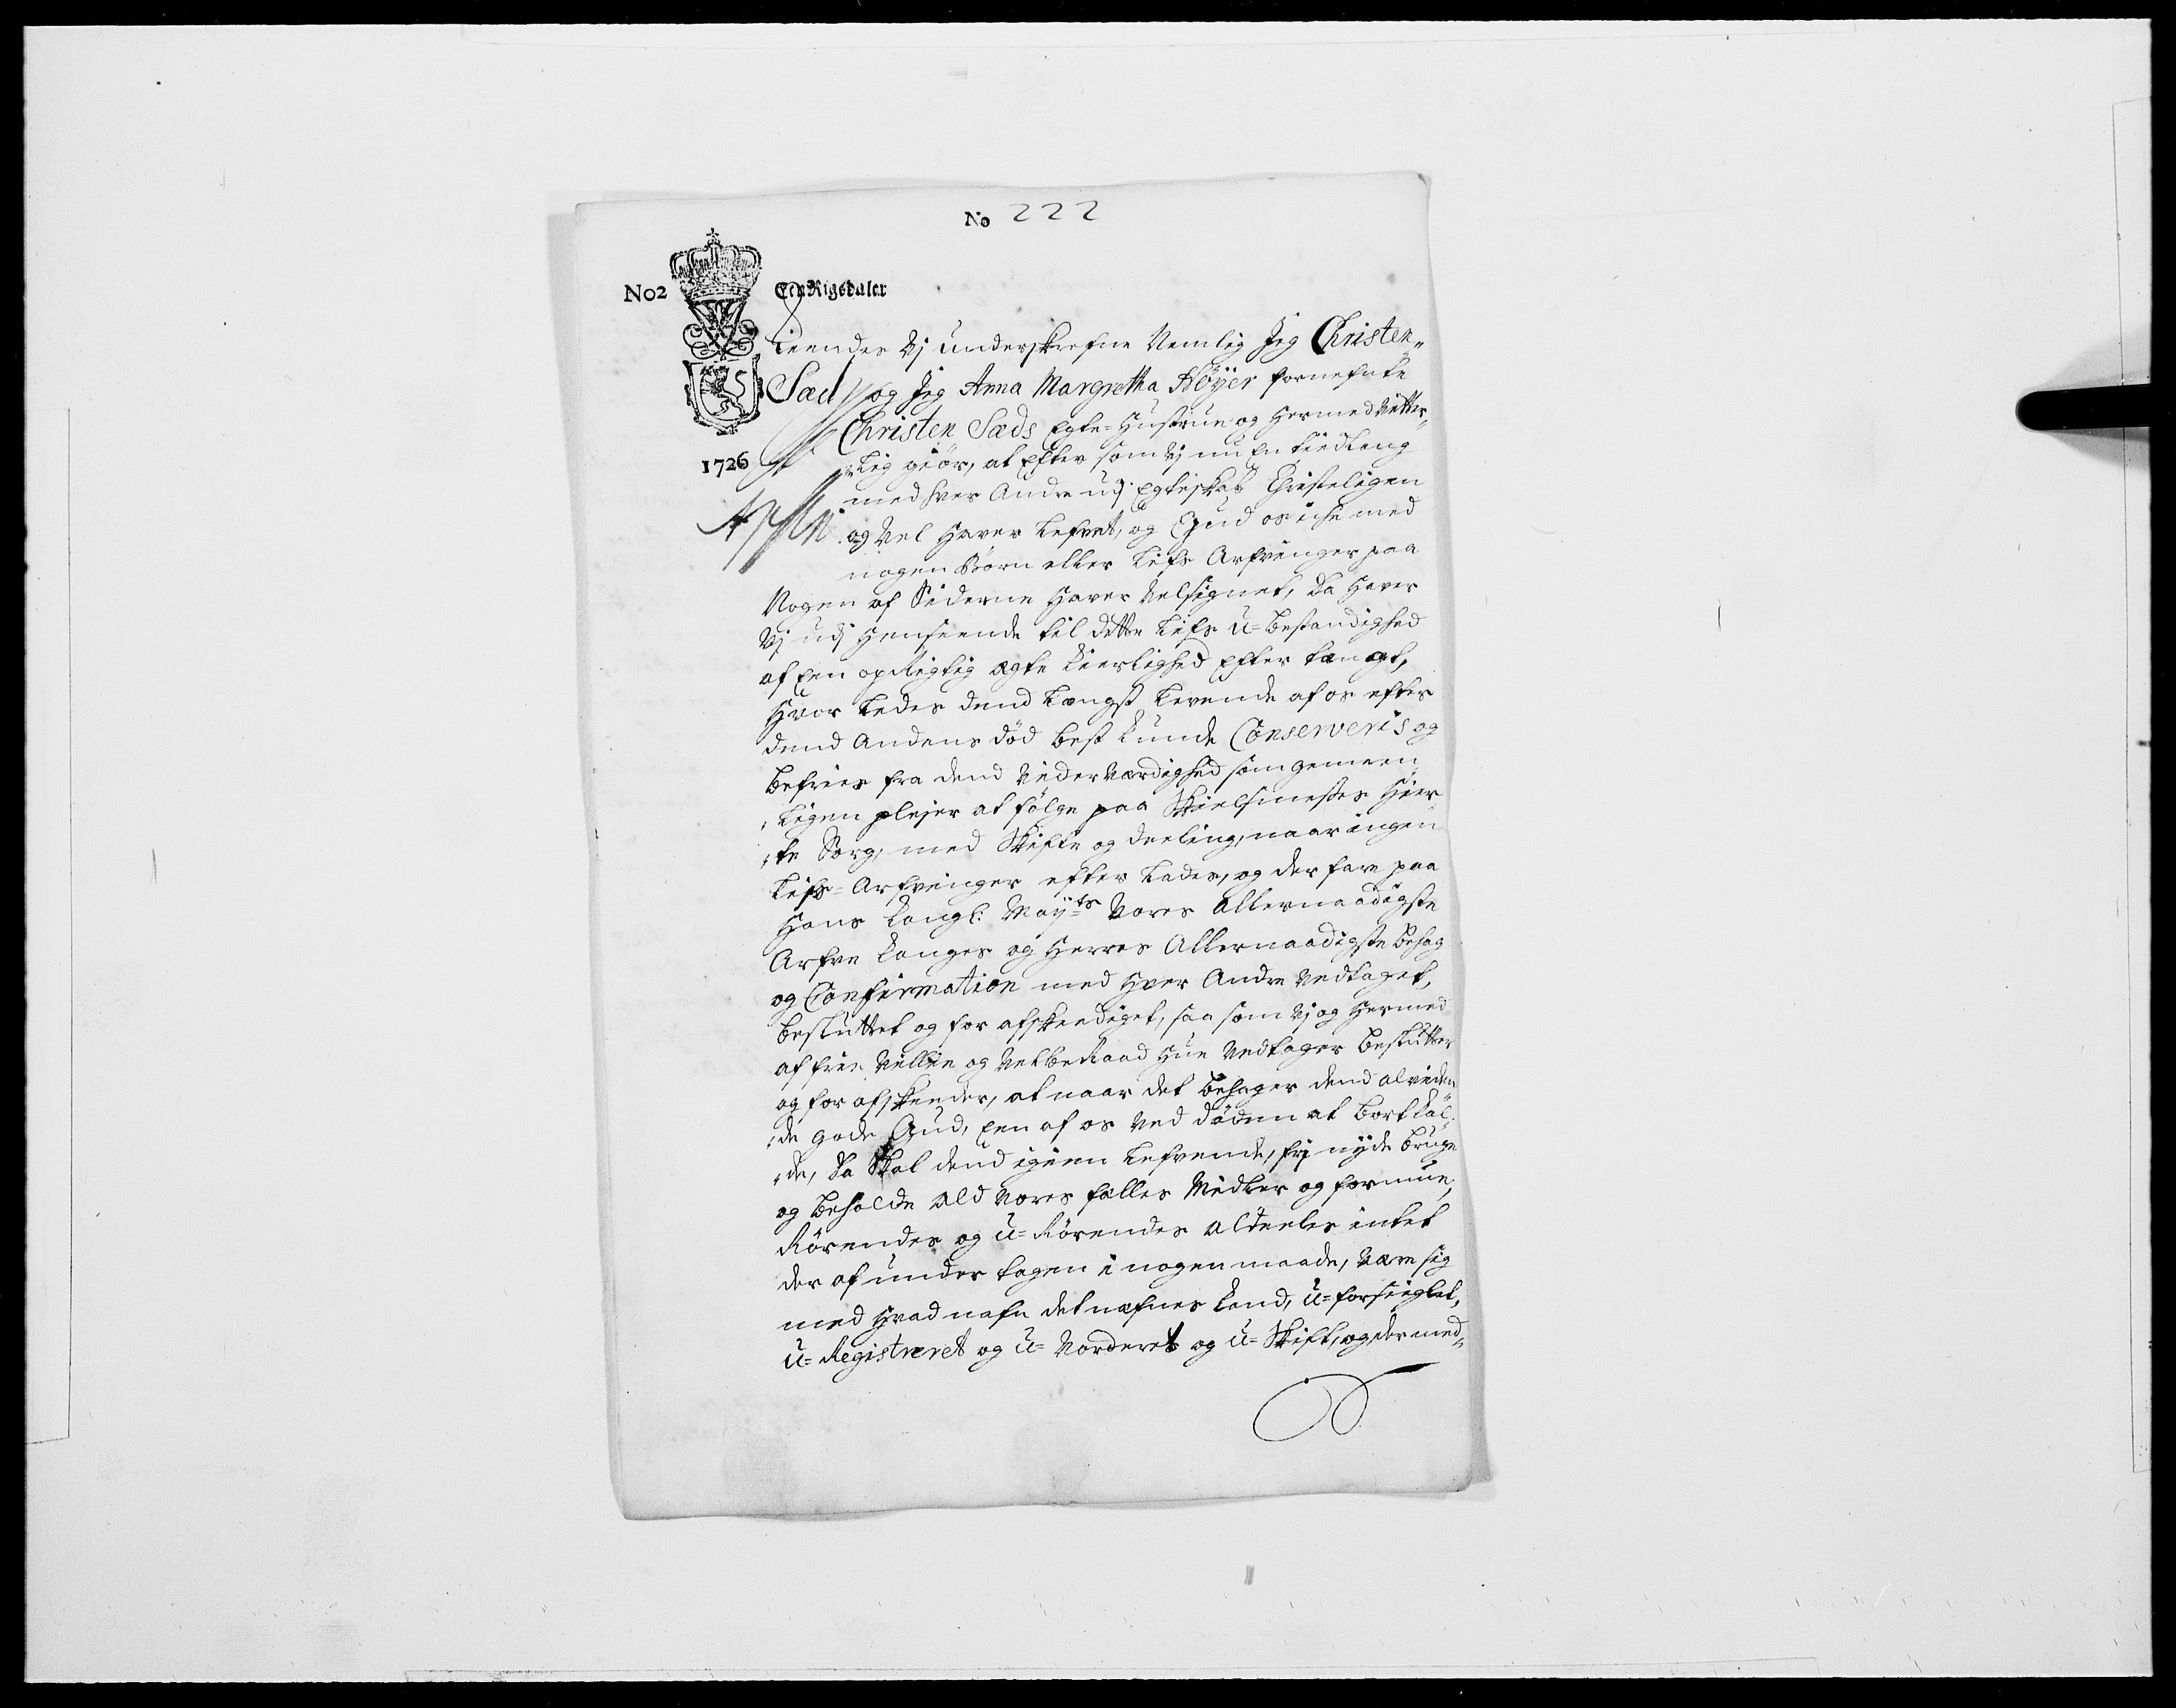 No 222
No2
Een Rigsdaler
1726
Kiendes Vj underskrefne Nemlig Jeg Christen
Sæd og Jeg Anna Margretha Höyer fornefnte
Christen Sæds Egte-Hustrue og Hermed Vitter„
„lig giör, at Efter som Vj nu En tiid lang
med hver Andre udj Egteskab Christeligen
og Vel Haver Lefvet, og Gud os iche med
nogen Börn eller Lifs Arfvinger paa
Nogen af Siderne Haver Velsignet, Da Haver
Vj udj Henseende til dette Lifs U=bestandighed
af Een opRigtig ægte Kierlighed Efter tængt,
Hvor Ledes dend Længst Levende af os efter
dend Andens död best kunde Conserveris og
Befries fra dend Vider Værdighed som gemeen
„Ligen plejer at fölge paa Skielsmesses Hier„
„te Sorg, med Skifte og deeling, naar ingen
Lifs=Arfvinger efter Lades, og der fore paa
Hans Kongl: May:ts Vores Allernaadigste
Arfve Konges og Herres Allernaadigste Behag
og Confirmation med Hver Andre Vedtaget,
besluttet og for afskeediget, saa som Vj og Hermed
af frie Villie og Velberaad Hue Vedtager Beslutter
og for afskeeder, at naar det Behager dend alviden
„de gode Gud, Een af os Ved döden at bortkal„
„de, Da Skal dend igien Lefvende, frj nyde bruge
og beholde ald Vores fælles Midler og formue,
Rörendes og U=Rörendes aldeeles intet
der af under tagen i nogen maade, Være sig
med Hvad nafn det næfnes Kand, U=forsieglet,
U=Registreret og U=Vorderet og U=Skift, og dermed„